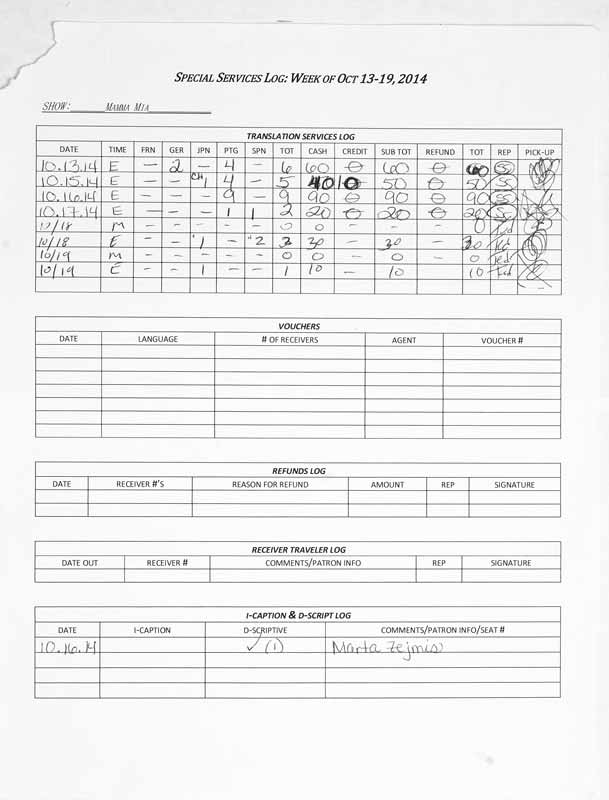 SPECIAL SERVICES LOG: WEEK OF OCT 13-19, 2014
SHOW: MAMMA MIA
TRANSLATION SERVICES LOG
DATE TIME FRN GER JPN PTG SPN TOT CASH CREDIT SUB TOT REFUND TOT REP PICK-UP
10.13.14 E — 2 — 4 — 6 60 0 60 0 60 SS
10.15.14 E — — CH1 4 — 5 40 10 50 0 50 SS
10.16.14 E — — — 9 — 9 90 0 90 0 90 SS
10.17.14 E — — — 1 1 2 20 0 20 0 20 SS
10/18 M — — — — — 0 0 — 0 — 0 Ted
10/18 E — — 1 — 2 3 30 — 30 — 30 Ted
10/19 M — — — — — 0 0 — 0 — 0 Ted
10/19 E — — 1 — — 1 10 — 10 10 Ted
VOUCHERS
DATE LANGUAGE # OF RECEIVERS AGENT VOUCHER #
REFUNDS LOG
DATE RECEIVER #'S REASON FOR REFUND AMOUNT REP SIGNATURE
RECEIVER TRAVELER LOG
DATE OUT RECEIVER # COMMENTS/PATRON INFO REP SIGNATURE
I-CAPTION & D-SCRIPT LOG
DATE I-CAPTION D-SCRIPTIVE COMMENTS/PATRON INFO/SEAT #
10.16.14 ✓ (1) Marta Zejmis